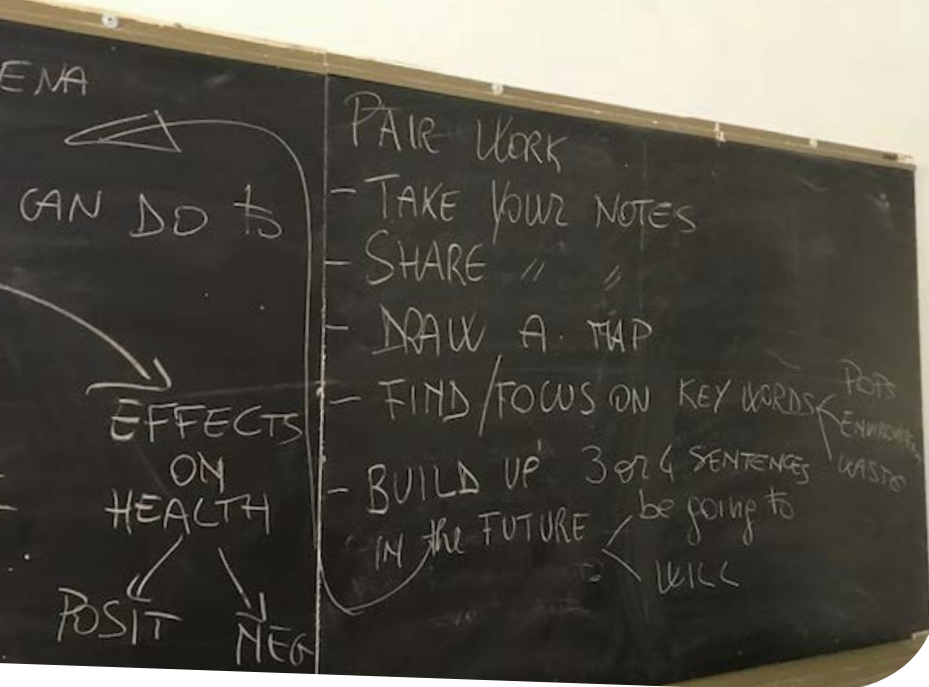 ENA
CAN DO to
EFFECTS
ON
HEALTH
POSIT
NEG
PAIR WORK
- TAKE YOUR NOTES
- SHARE " "
- DRAW A MAP
- FIND/FOCUS ON KEY WORDS
POPs
ENVIRONMEN
WASTE
- BUILD UP 3 or 4 SENTENCES
IN the FUTURE
be going to
WILL